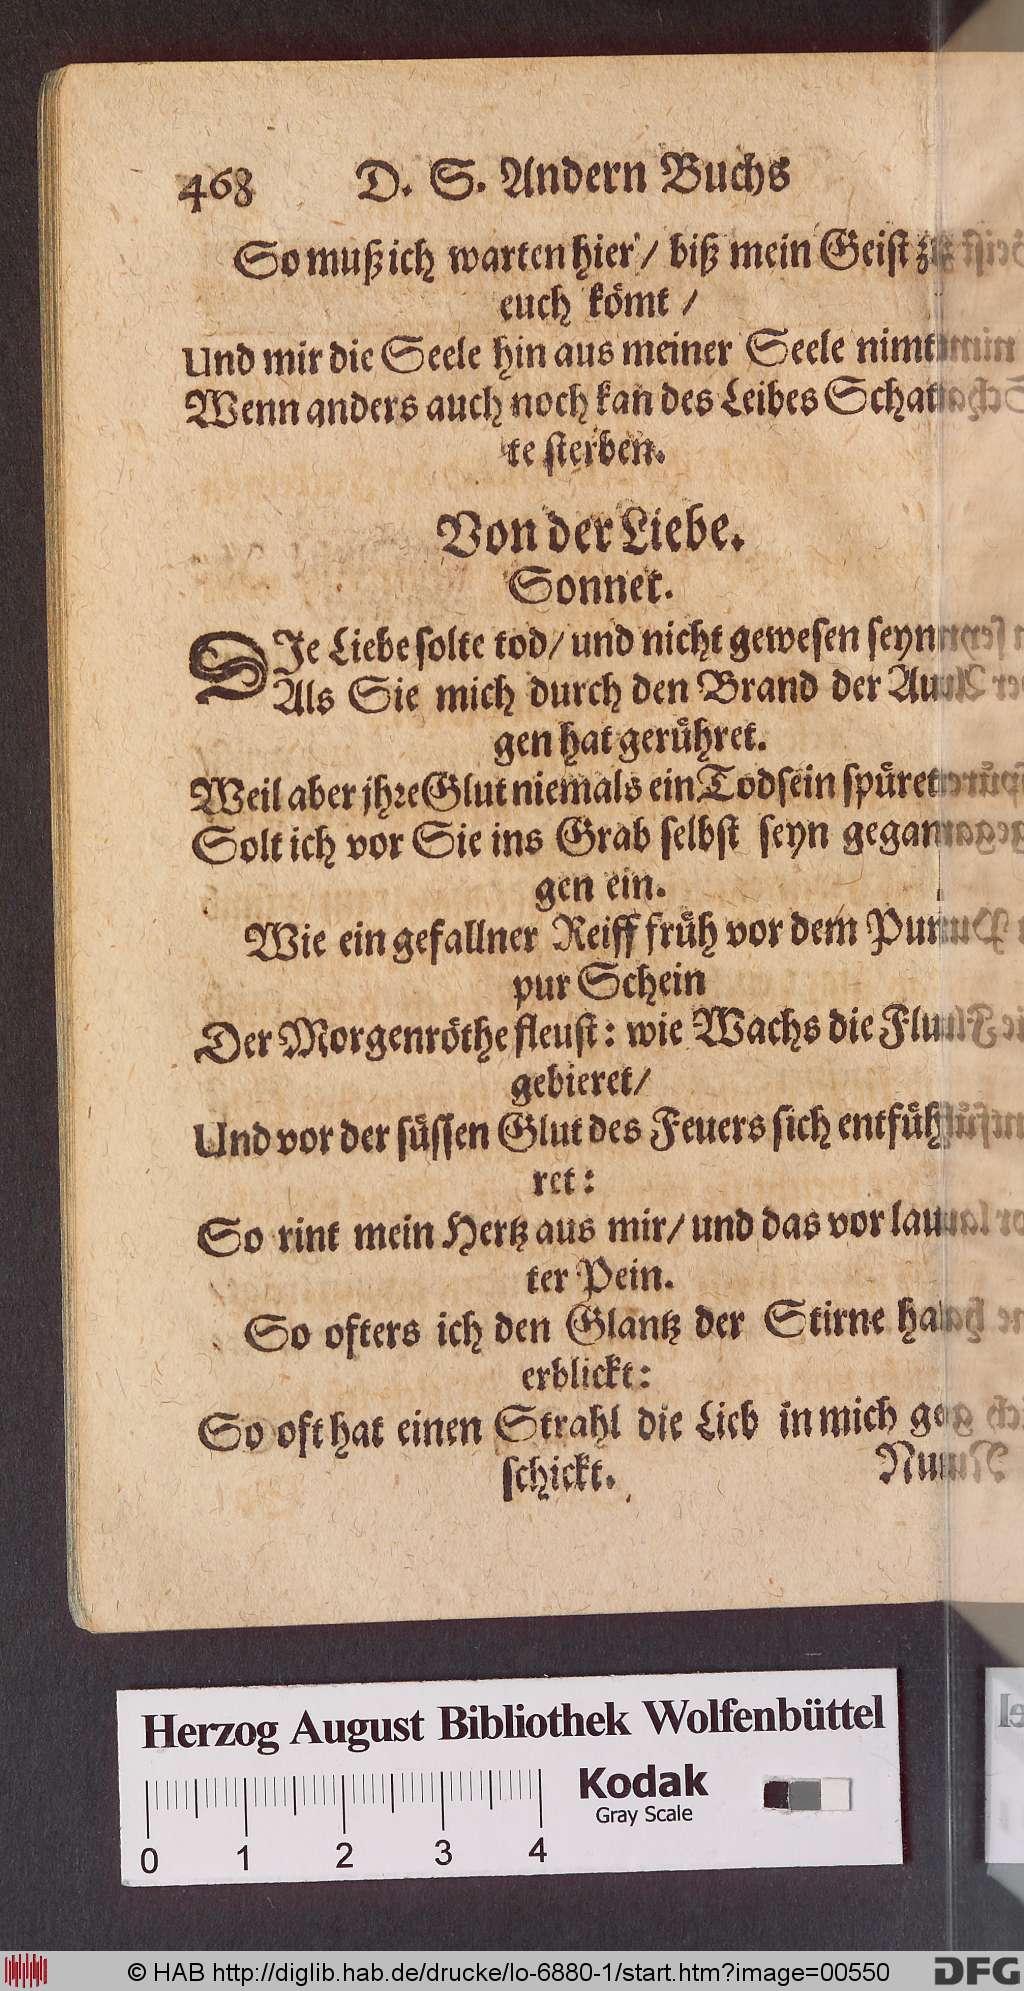 468 D. S. Andern Buchs
So muß ich warten hier / biß mein Geist zu
euch kömt /
Und mir die Seele hin aus meiner Seele nimt
Wenn anders auch noch kan des Leibes Schat-
te sterben.
Von der Liebe.
Sonnet.
DIe Liebe solte tod / und nicht gewesen seyn
Als Sie mich durch den Brand der Au-
gen hat gerühret.
Weil aber jhre Glut niemals ein Todsein spüret
Solt ich vor Sie ins Grab selbst seyn gegan-
gen ein.
Wie ein gefallner Reiff früh vor dem Pur-
pur Schein
Der Morgenröthe fleust: wie Wachs die Flu
gebieret /
Und vor der süssen Glut des Feuers sich entfüh-
ret:
So rint mein Hertz aus mir / und das vor lau-
ter Pein.
So ofters ich den Glantz der Stirne ha
erblickt:
So oft hat einen Strahl die Lieb in mich ge-
schickt.
Nu
Herzog August Bibliothek Wolfenbüttel
Kodak
Gray Scale
0 1 2 3 4
© HAB http://diglib.hab.de/drucke/lo-6880-1/start.htm?image=00550
DFG